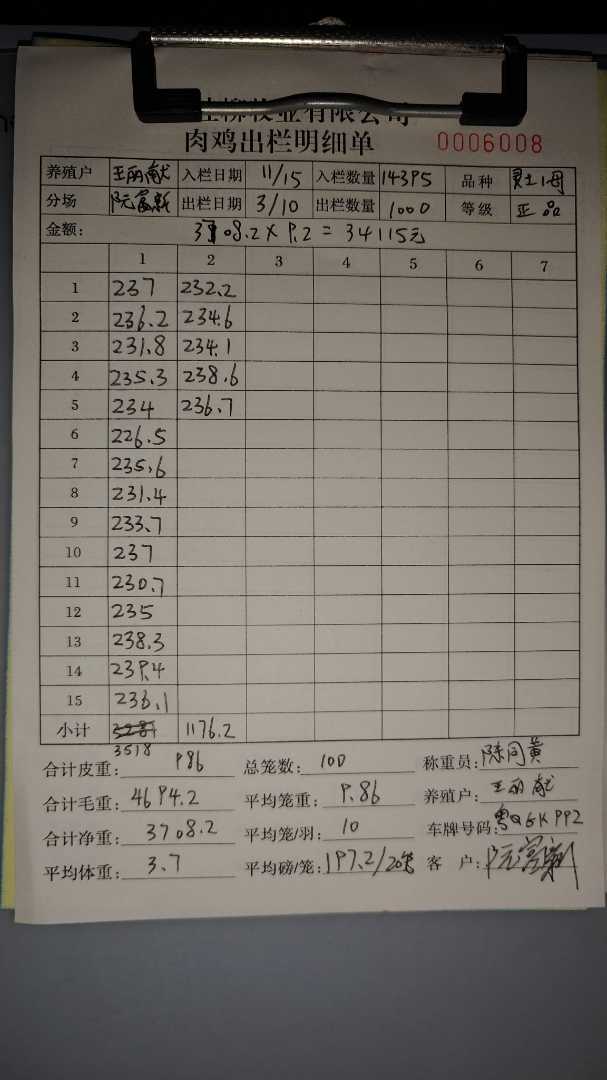 牧业有限公司
肉鸡出栏明细单 0006008
养殖户 王丽献 入栏日期 11/15 入栏数量 14395 品种 灵土1母
分场 阮富新 出栏日期 3/10 出栏数量 1000 等级 正品
金额: 3708.2 X 9.2 = 34115元
1 2 3 4 5 6 7
1 237 232.2
2 236.2 234.6
3 231.8 234.1
4 235.3 238.6
5 234 236.7
6 226.5
7 235.6
8 231.4
9 233.7
10 237
11 230.7
12 235
13 238.3
14 239.4
15 236.1
小计 1176.2
3518
合计皮重: 986 总笼数: 100 称重员: 陈同黄
合计毛重: 4694.2 平均笼重: 9.86 养殖户: 王丽献
合计净重: 3708.2 平均笼/羽: 10 车牌号码:
平均体重: 3.7 平均磅/笼: 197.2/20笼 客户: